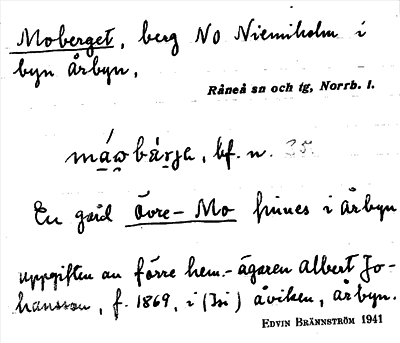 Moberget, berg NO Niemiholm i
byn Årbyn.
Råneå sn och tg, Norrb. l.
bf. n. 35.
En gård Övre-Mo finnes i Årbyn
Uppgiften av förre hem.-ägaren Albert Jo-
hansson, f. 1869, i (Isi) åviken, Årbyn.
EDVIN BRÄNNSTRÖM 1941